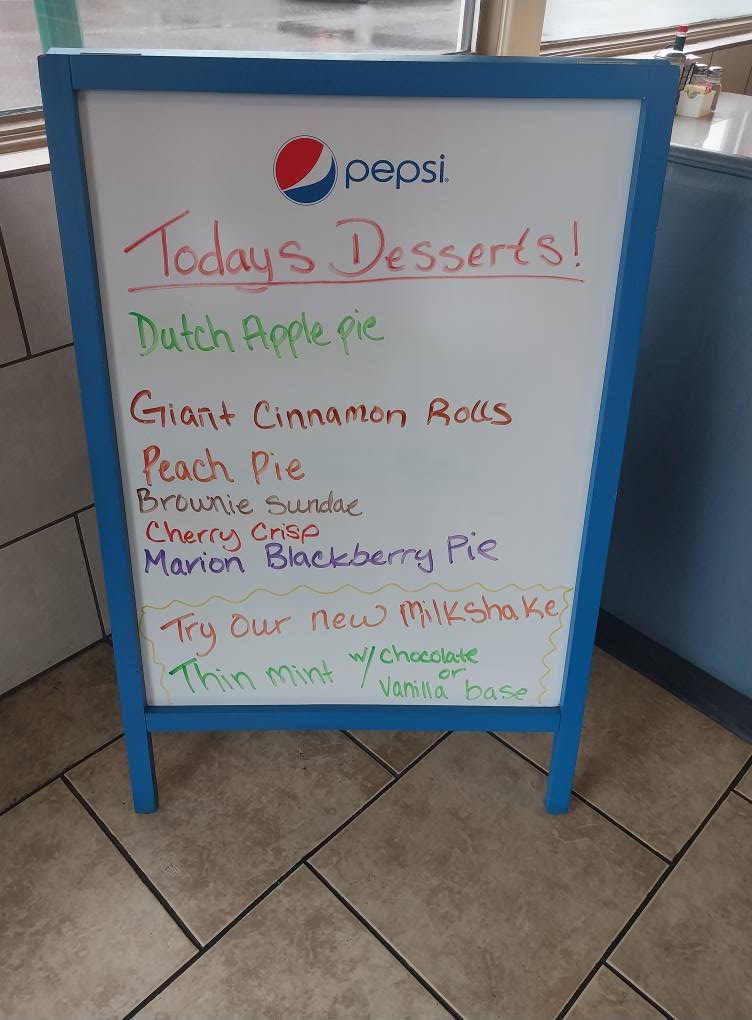 pepsi
Todays Desserts!
Dutch Apple pie
Giant Cinnamon Rolls
Peach Pie
Brownie Sundae
Cherry Crisp
Marion Blackberry Pie
Try our new Milkshake
Thin mint w/ chocolate
or
Vanilla base